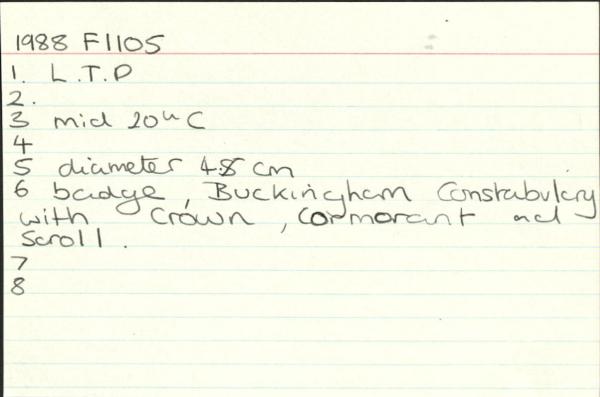 1988 F1105
1. L.T.D
2.
3 mid 20th C
4
5 diameter 4.8 cm
6 badge, Buckingham Constabulary
with Crown, Cormorant and
Scroll.
7
8